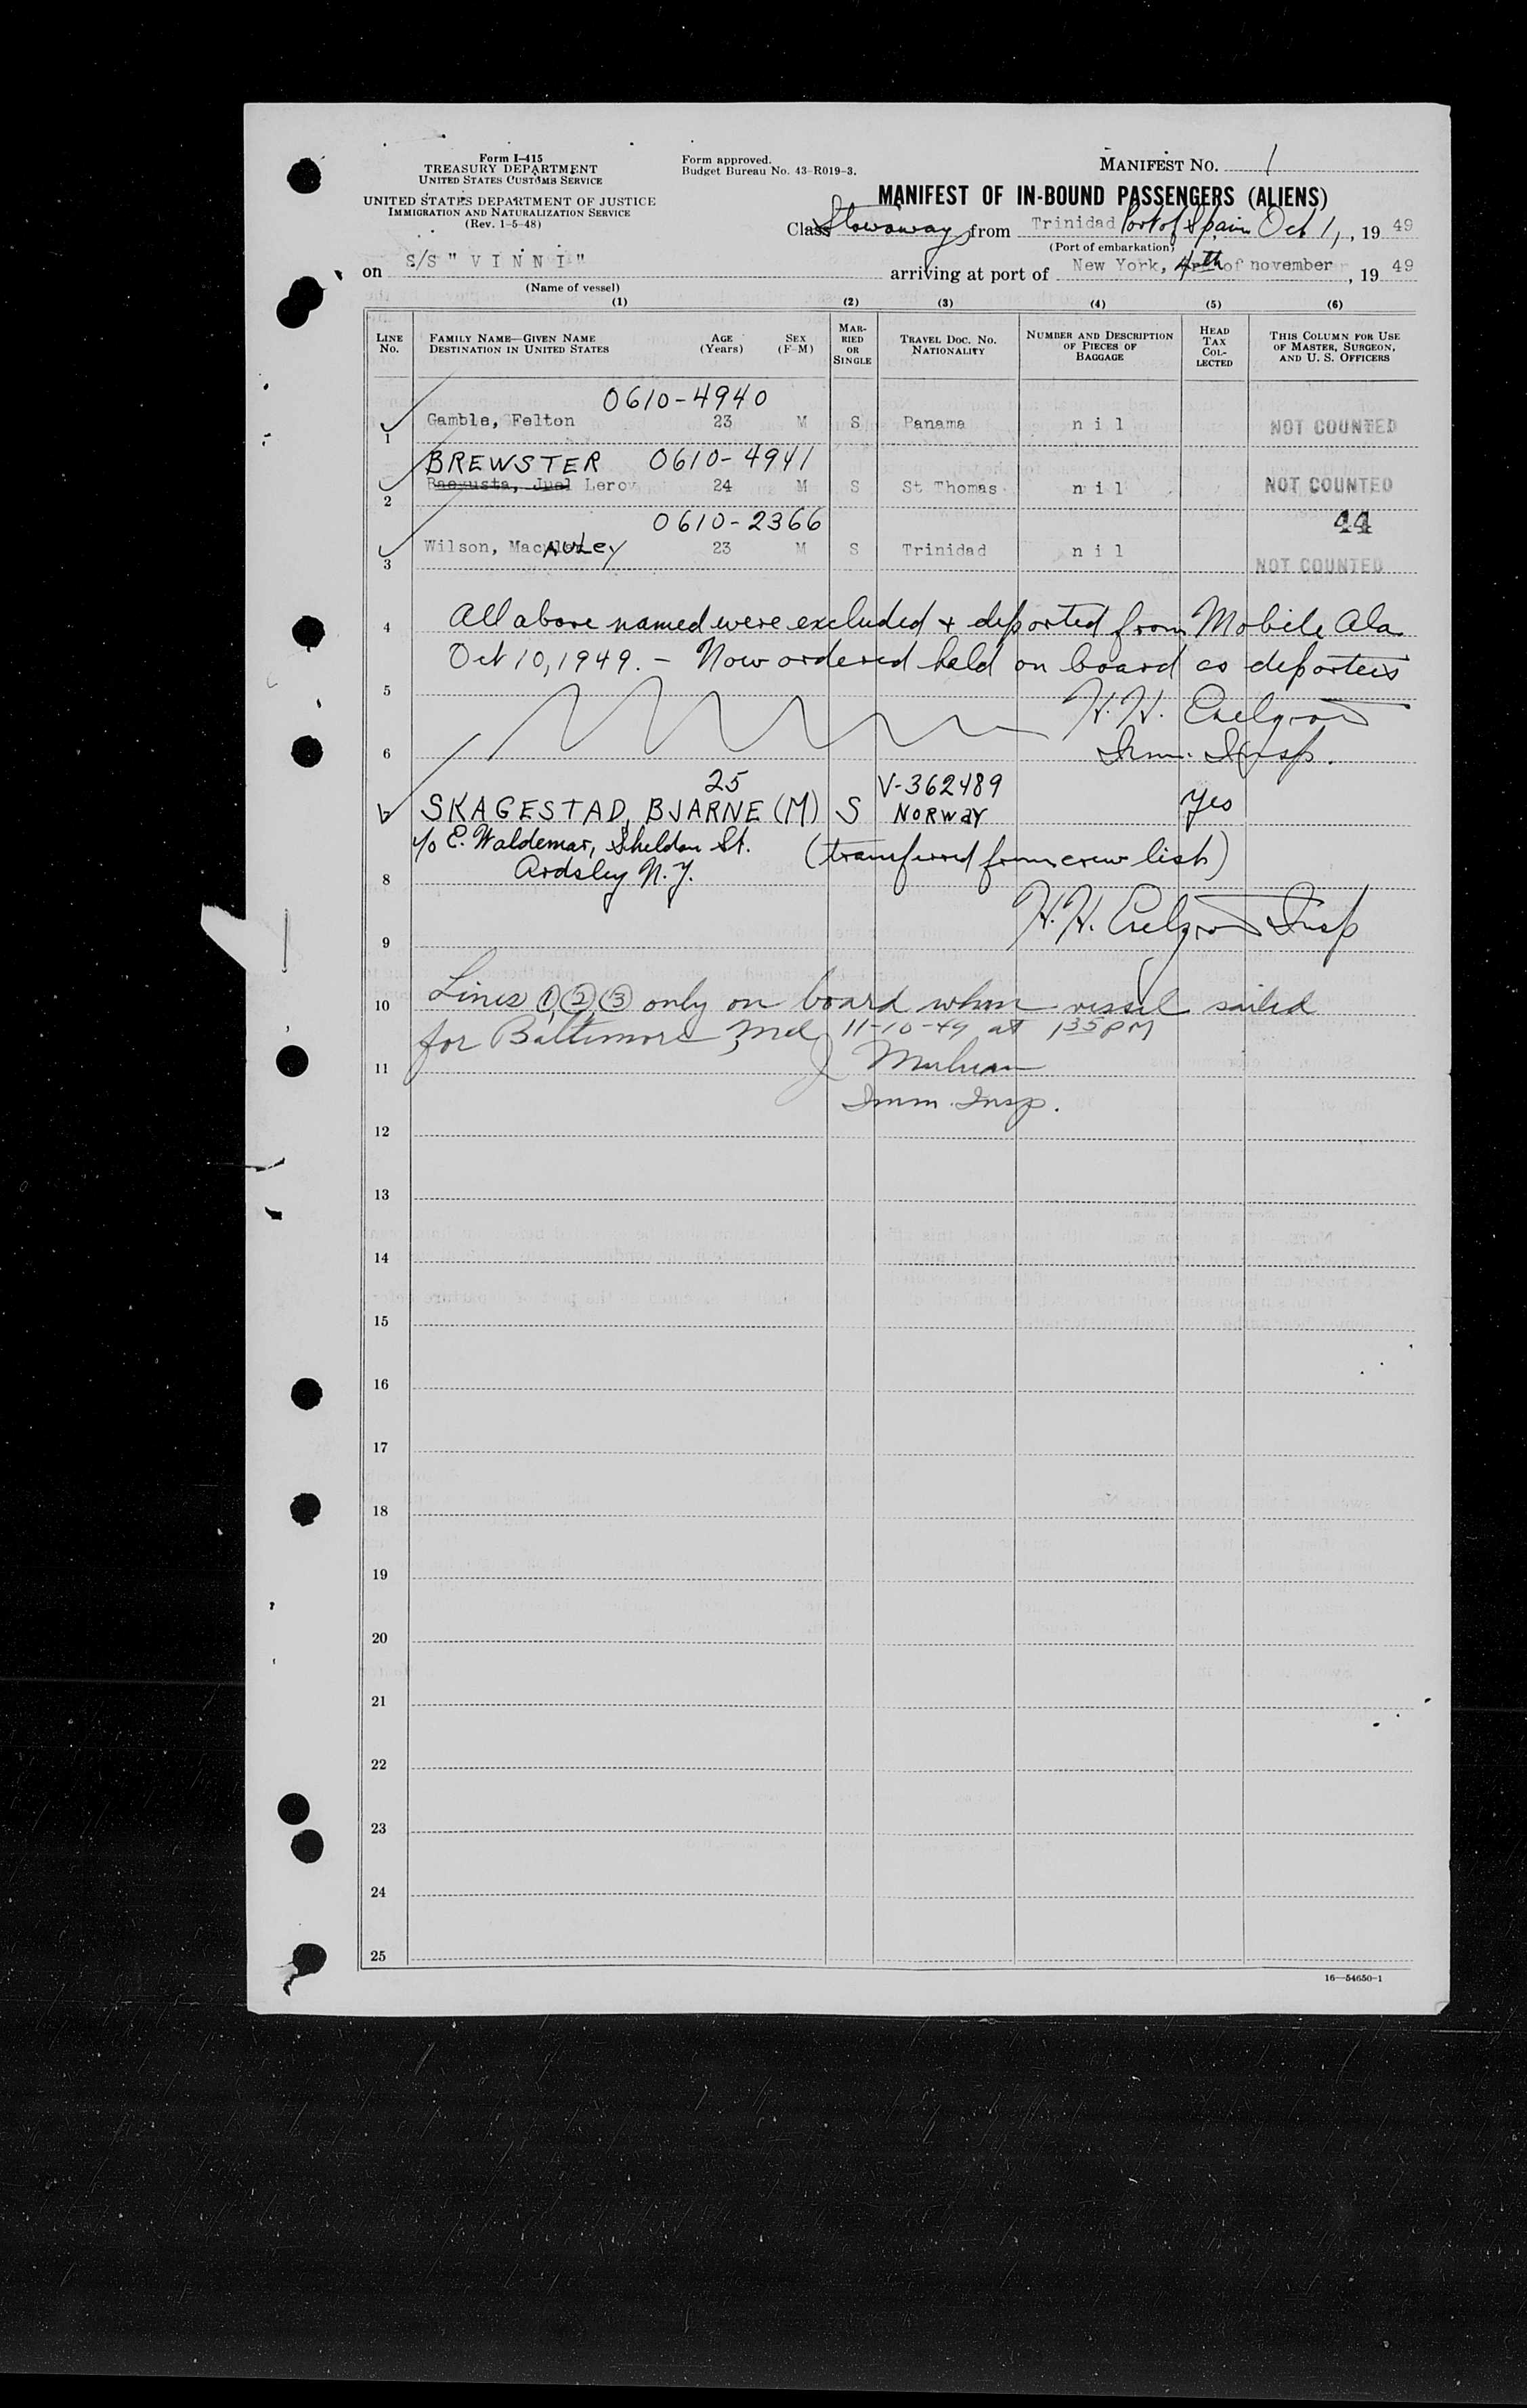 Form I-415
TREASURY DEPARTMENT
UNITED STATES CUSTOMS SERVICE
UNITED STATES DEPARTMENT OF JUSTICE
IMMIGRATION AND NATURALIZATION SERVICE
(Rev. 1-5-48)
Form approved.
Budget Bureau No. 43-R019-3.
MANIFEST NO. 1
MANIFEST OF IN-BOUND PASSENGERS (ALIENS)
Class Stowaways from Trinidad Port of Spain Oct 1, , 19 49
(Port of embarkation)
on S/S " V I N N I " arriving at port of New York, 4th of november , 19 49
(Name of vessel)
(1) (2) (3) (4) (5) (6)
LINE No. FAMILY NAME—GIVEN NAME DESTINATION IN UNITED STATES AGE (Years) SEX (F-M) MARRIED OR SINGLE TRAVEL DOC. NO. NATIONALITY NUMBER AND DESCRIPTION OF PIECES OF BAGGAGE HEAD TAX COLLECTED THIS COLUMN FOR USE OF MASTER, SURGEON, AND U. S. OFFICERS
0610-4940
1 Gamble, Felton 23 M S Panama n i l NOT COUNTED
BREWSTER 0610-4941
2 Leroy 24 M S St Thomas n i l NOT COUNTED
0610-2366 44
3 Wilson, Macauley 23 M S Trinidad n i l NOT COUNTED
4 All above named were excluded + deported from Mobile Ala.
Oct 10, 1949. - Now ordered held on board as deportees
5 H. H.
6 Imm. Insp.
25 V-362489
SKAGESTAD, BJARNE (M) S NORWAY Yes
c/o E. Waldemar, Sheldon St. (transferred from crew list)
8 Ardsley N.Y.
9 H. H. Insp
10 Lines 1, 2, 3 only on board when vessel sailed
for Baltimore, Md 11-10-49 at 135 PM
11
Imm. Insp.
12
13
14
15
16
17
18
19
20
21
22
23
24
25
16—54650-1